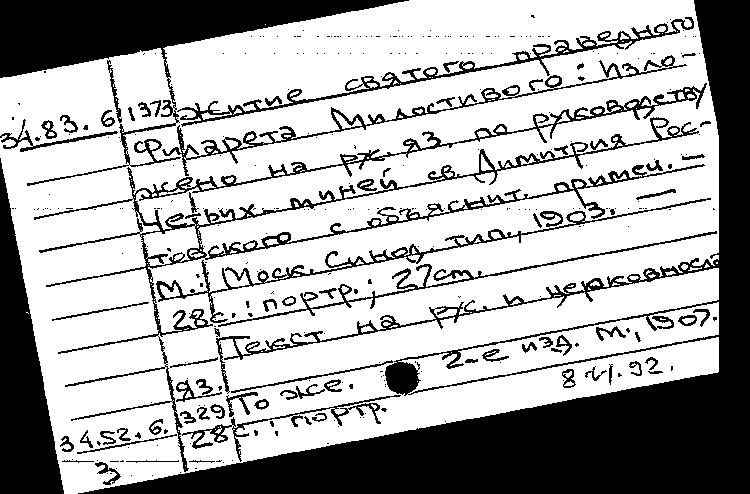 34.83. 6 1373 Житие святого праведного
Филарета Милостивого: Изло-
жено на рус. яз. по руководству
Четьих-миней св. Димитрия Рос-
товского с объяснит. примеч. —
М.: Моск. Синод. тип., 1903. —
28с.: портр.; 27см.
Текст на рус. и церковносла
яз.
329 То же. 2-е изд. М., 1907.
34.52. 6. 28с.: портр.
3